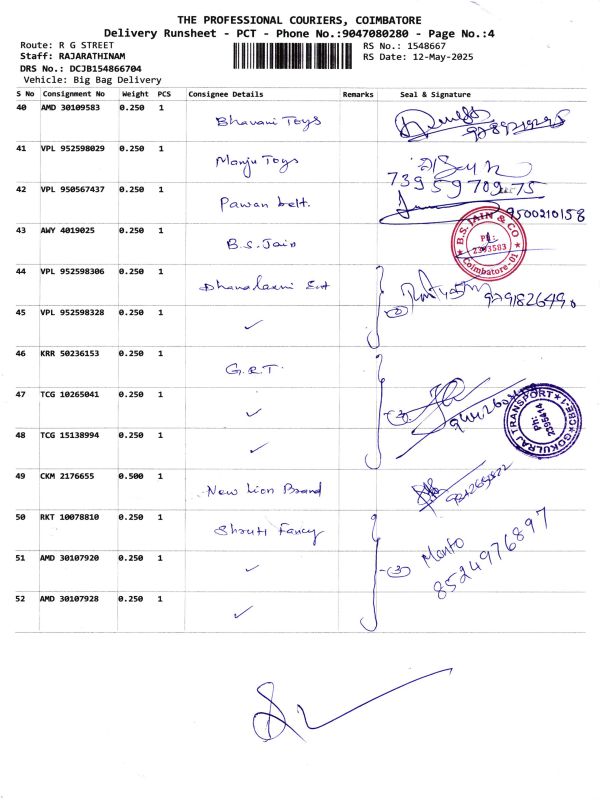 THE PROFESSIONAL COURIERS, COIMBATORE
Delivery Runsheet - PCT - Phone No.:9047080280 - Page No.:4
Route: R G STREET
RS No.: 1548667
Staff: RAJARATHINAM
RS Date: 12-May-2025
DRS No.: DCJB154866704
Vehicle: Big Bag Delivery
S No Consignment No Weight PCS Consignee Details Remarks Seal & Signature
40 AMD 30109583 0.250 1 Bhavani Toys
41 VPL 952598029 0.250 1 Manju Toys
7395970975
42 VPL 950567437 0.250 1 Pawan belt. 9500210158
43 AWY 4019025 0.250 1 B.S. Jain
B.S. JAIN & CO
PH: 2393583
Coimbatore-01
44 VPL 952598306 0.250 1 Dhanalaxmi Ent
45 VPL 952598328 0.250 1 ✓ 2
46 KRR 50236153 0.250 1 G.R.T.
47 TCG 10265041 0.250 1 ✓ 3
GOKULRAJ TRANSPORT CBE-1
Ph: 2395614
48 TCG 15138994 0.250 1 ✓
49 CKM 2176655 0.500 1 New Lion Brand
50 RKT 10078810 0.250 1 Shruti Fancy
51 AMD 30107920 0.250 1 ✓ 3
8524976897
52 AMD 30107928 0.250 1 ✓